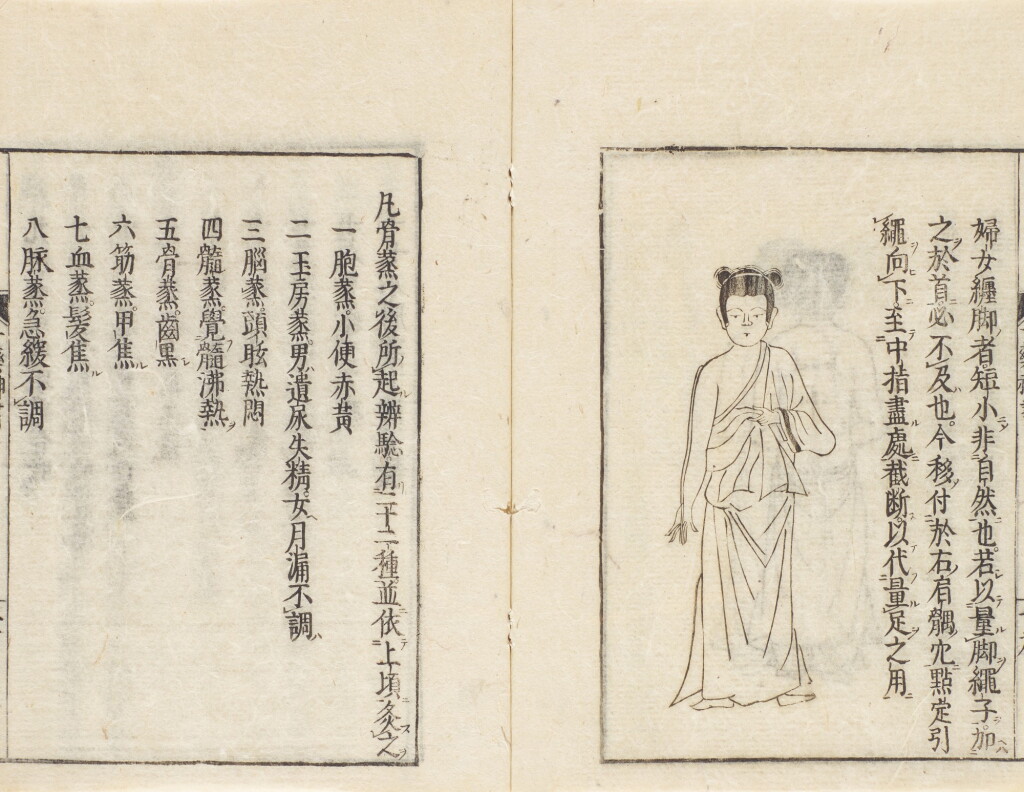 婦女纏脚者短小非自然也若以量脚繩子加
之於首必不及也今移付於右肩髃穴點定引
繩向下至中指盡處截断以代量足之用
凡骨蒸之後所起辨驗有二十二種並依上項灸之
一胞蒸小便赤黄
二玉房蒸男遺尿失精女月漏不調
三腦蒸頭眩熱悶
四髓蒸覺髓沸熱
五骨蒸齒黒
六筋蒸甲焦
七血蒸髪焦
八脉蒸急緩不調